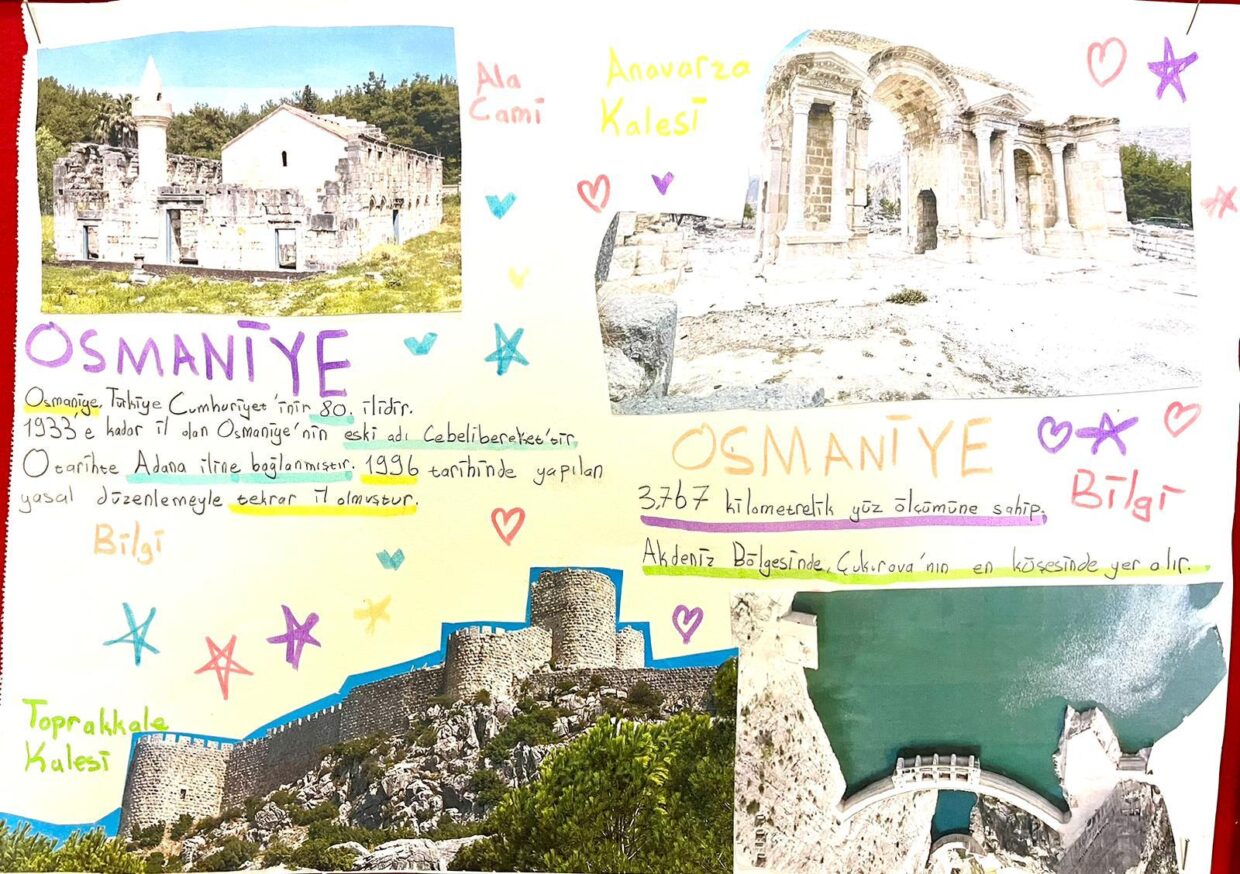 Ala
Cami
Anavarza
Kalesi
OSMANİYE
Osmaniye, Türkiye Cumhuriyet'inin 80. ilidir.
1933'e kadar il olan Osmaniye'nin eski adı Cebelibereket'tir.
O tarihte Adana iline bağlanmıştır. 1996 tarihinde yapılan
yasal düzenlemeyle tekrar il olmuştur.
Bilgi
OSMANİYE
Bilgi
3,767 kilometrelik yüz ölçümüne sahip.
Akdeniz Bölgesinde, Çukurova'nın en köşesinde yer alır.
Toprakkale
Kalesi